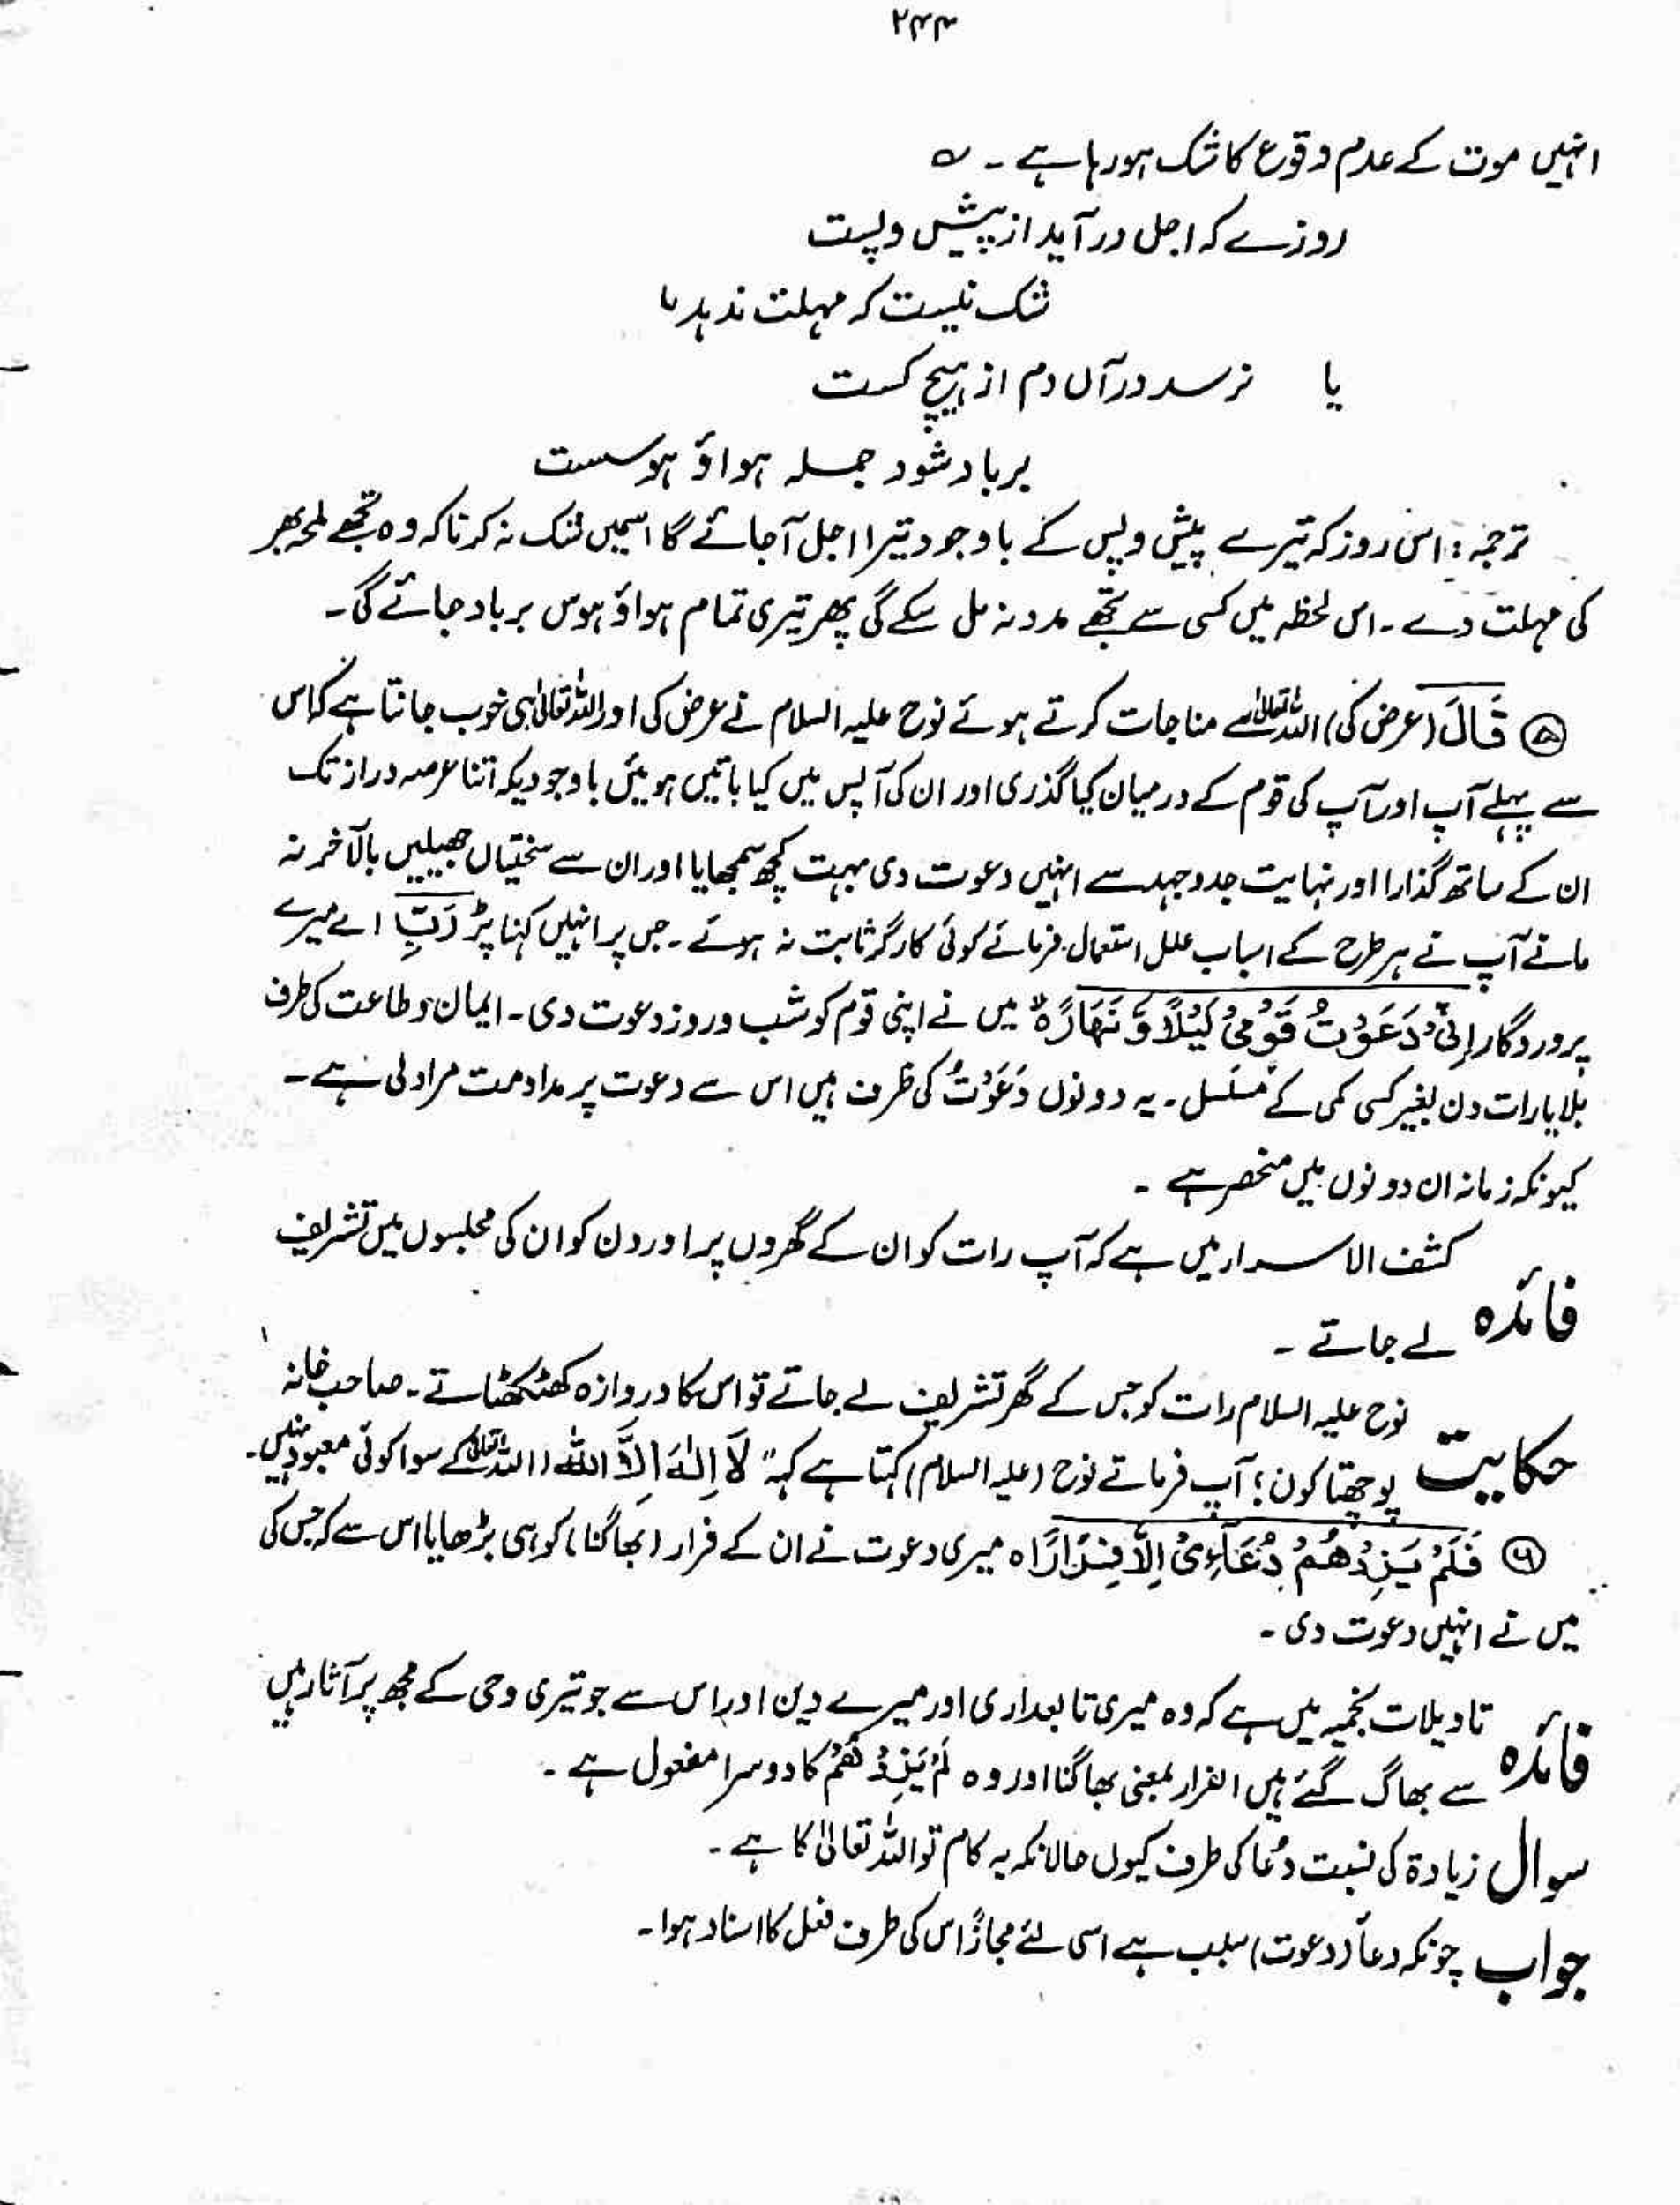 ۲۴۴
انہیں موت کے عدم وقوع کا شک ہو رہا ہے ۔ ؎
روزے کہ اجل در آید از پیش و پست
شک نیست کہ مہلت ندہد
یا نرسد در آں دم از ہیچ کست
برباد شود جملہ ہواؤ ہوست
ترجمہ : اس روز کہ تیرے پیش وپس کے باوجود تیرا اجل آجائے گا اسمیں شک نہ کرنا کہ وہ تجھے لمحہ بھر
کی مہلت دے ۔ اس لحظہ میں کسی سے تجھے مدد نہ مل سکے گی پھر تیری تمام ہواؤ ہوس برباد جائے گی ۔
⑤ قَالَ (عرض کی) اللہ تعالیٰ سے مناجات کرتے ہوئے نوح علیہ السلام نے عرض کی اور اللہ تعالیٰ ہی خوب جانتا ہے کہ اس
سے پہلے آپ اور آپ کی قوم کے درمیان کیا گذری اور ان کی آپس میں کیا باتیں ہوئیں باوجودیکہ اتنا عرصہ دراز تک
ان کے ساتھ گذارا اور نہایت جدوجہد سے انہیں دعوت دی بہت کچھ سمجھایا اور ان سے سختیاں جھیلیں بالآخر نہ
مانے آپ نے ہر طرح کے اسباب علل استعمال فرمائے کوئی کارگر ثابت نہ ہوئے ۔ جس پر انہیں کہنا پڑ رَبِّ اے میرے
پروردگار اِنِّیْ دَعَوْتُ قَوْمِیْ لَیْلًا وَّ نَهَارًا ہ میں نے اپنی قوم کو شب و روز دعوت دی ۔ ایمان و طاعت کی طرف
بلایا رات دن بغیر کسی کمی کے مسلسل ۔ یہ دونوں دَعَوْتُ کی ظرف ہیں اس سے دعوت پر مداومت مراد لی ہے ۔
کیونکہ زمانہ ان دونوں میں منحصر ہے ۔
فائدہ کشف الاسرار میں ہے کہ آپ رات کو ان کے گھروں پر اور دن کو ان کی مجلسوں میں تشریف
لے جاتے ۔
حکایت نوح علیہ السلام رات کو جس کے گھر تشریف لے جاتے تو اس کا دروازہ کھٹکھٹاتے ۔ صاحب خانہ
پوچھتا کون ؛ آپ فرماتے نوح (علیہ السلام) کہتا ہے کہہ " لَا اِلٰهَ اِلَّا اللّٰهُ (اللہ تعالیٰ کے سوا کوئی معبود نہیں ۔
⑥ فَلَمْ یَزِدْهُمْ دُعَآءِیْ اِلَّا فِرَارًا ہ میری دعوت نے ان کے فرار (بھاگنا) کو ہی بڑھایا اس سے کہ جس کی
میں نے انہیں دعوت دی ۔
فائدہ تاویلات نجمیہ میں ہے کہ وہ میری تابعداری اور میرے دین اور اس سے جو تیری وحی کے مجھ پر آثار ہیں
سے بھاگ گئے ہیں الفرار بمعنی بھاگنا اور وہ لَمْ یَزِدْهُمْ کا دوسرا مفعول ہے ۔
سوال زیادۃ کی نسبت دُعا کی طرف کیوں حالانکہ یہ کام تو اللہ تعالیٰ کا ہے ۔
جواب چونکہ دعاً (دعوت) سبب ہے اسی لئے مجازاً اس کی طرف فعل کا اسناد ہوا ۔